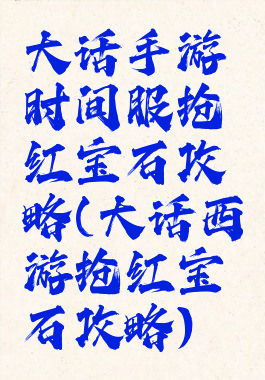 大话手游
时间服抢
红宝石攻
略(大话西
游抢红宝
石攻略)